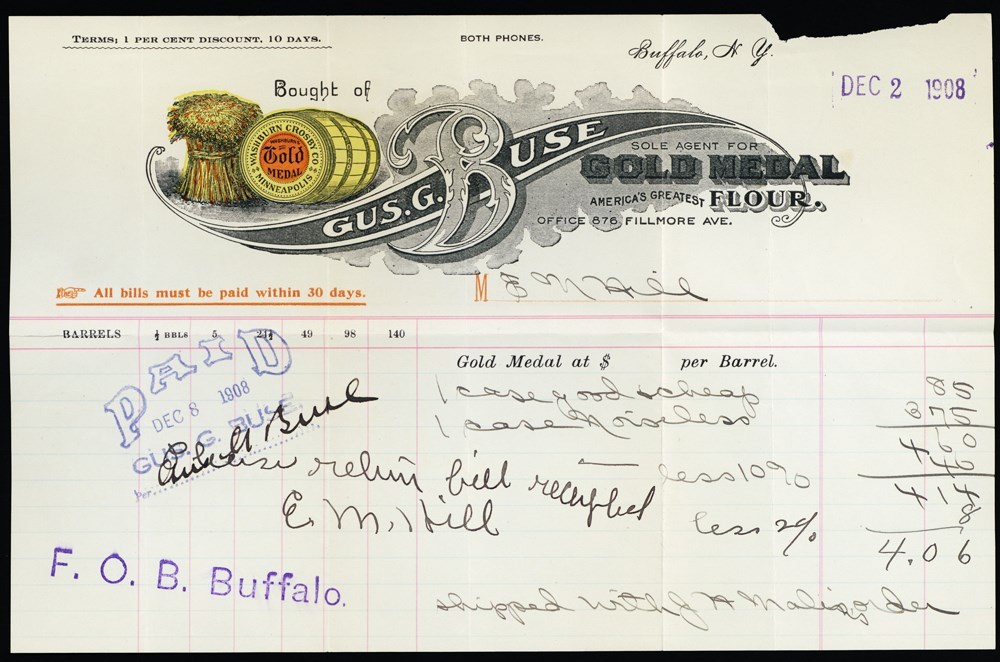 TERMS; 1 PER CENT DISCOUNT, 10 DAYS.
BOTH PHONES.
Buffalo, N. Y.
DEC 2 1908
Bought of
WASHBURN CROSBY CO.
WASHBURN'S
Gold
MEDAL
MINNEAPOLIS
GUS. G. BUSE
SOLE AGENT FOR
GOLD MEDAL
AMERICA'S GREATEST FLOUR.
OFFICE 876 FILLMORE AVE.
All bills must be paid within 30 days.
M E M Hill
BARRELS ½ BBLS 5 24½ 49 98 140
Gold Medal at $ per Barrel.
PAID
DEC 8 1908
GUS. G. BUSE.
Per
1 case good & cheap 85
1 case Noiseless 375
460
less 10% 46
414
less 2% 8
4.06
Please return bill receipted
E. M. Hill
F. O. B. Buffalo.
shipped with J H order